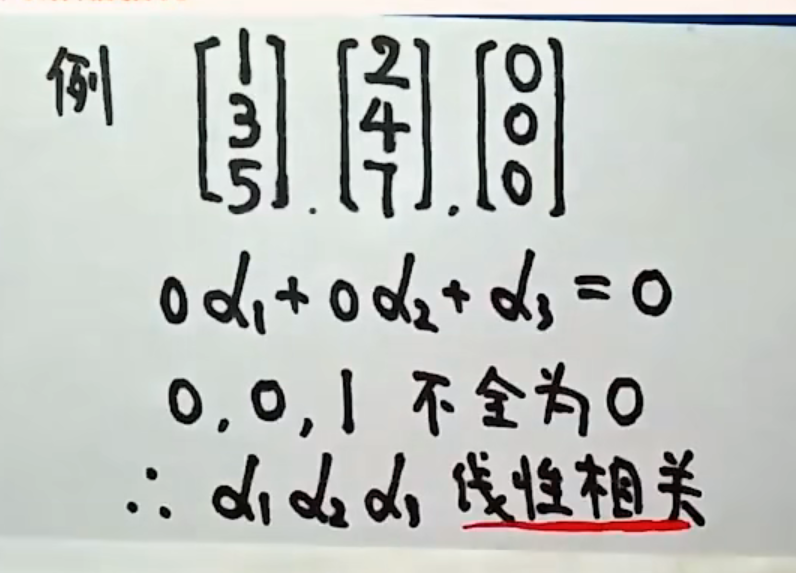 例 [1 3 5], [2 4 7], [0 0 0]
0α₁+0α₂+α₃=0
0,0,1 不全为0
∴ α₁ α₂ α₃ 线性相关